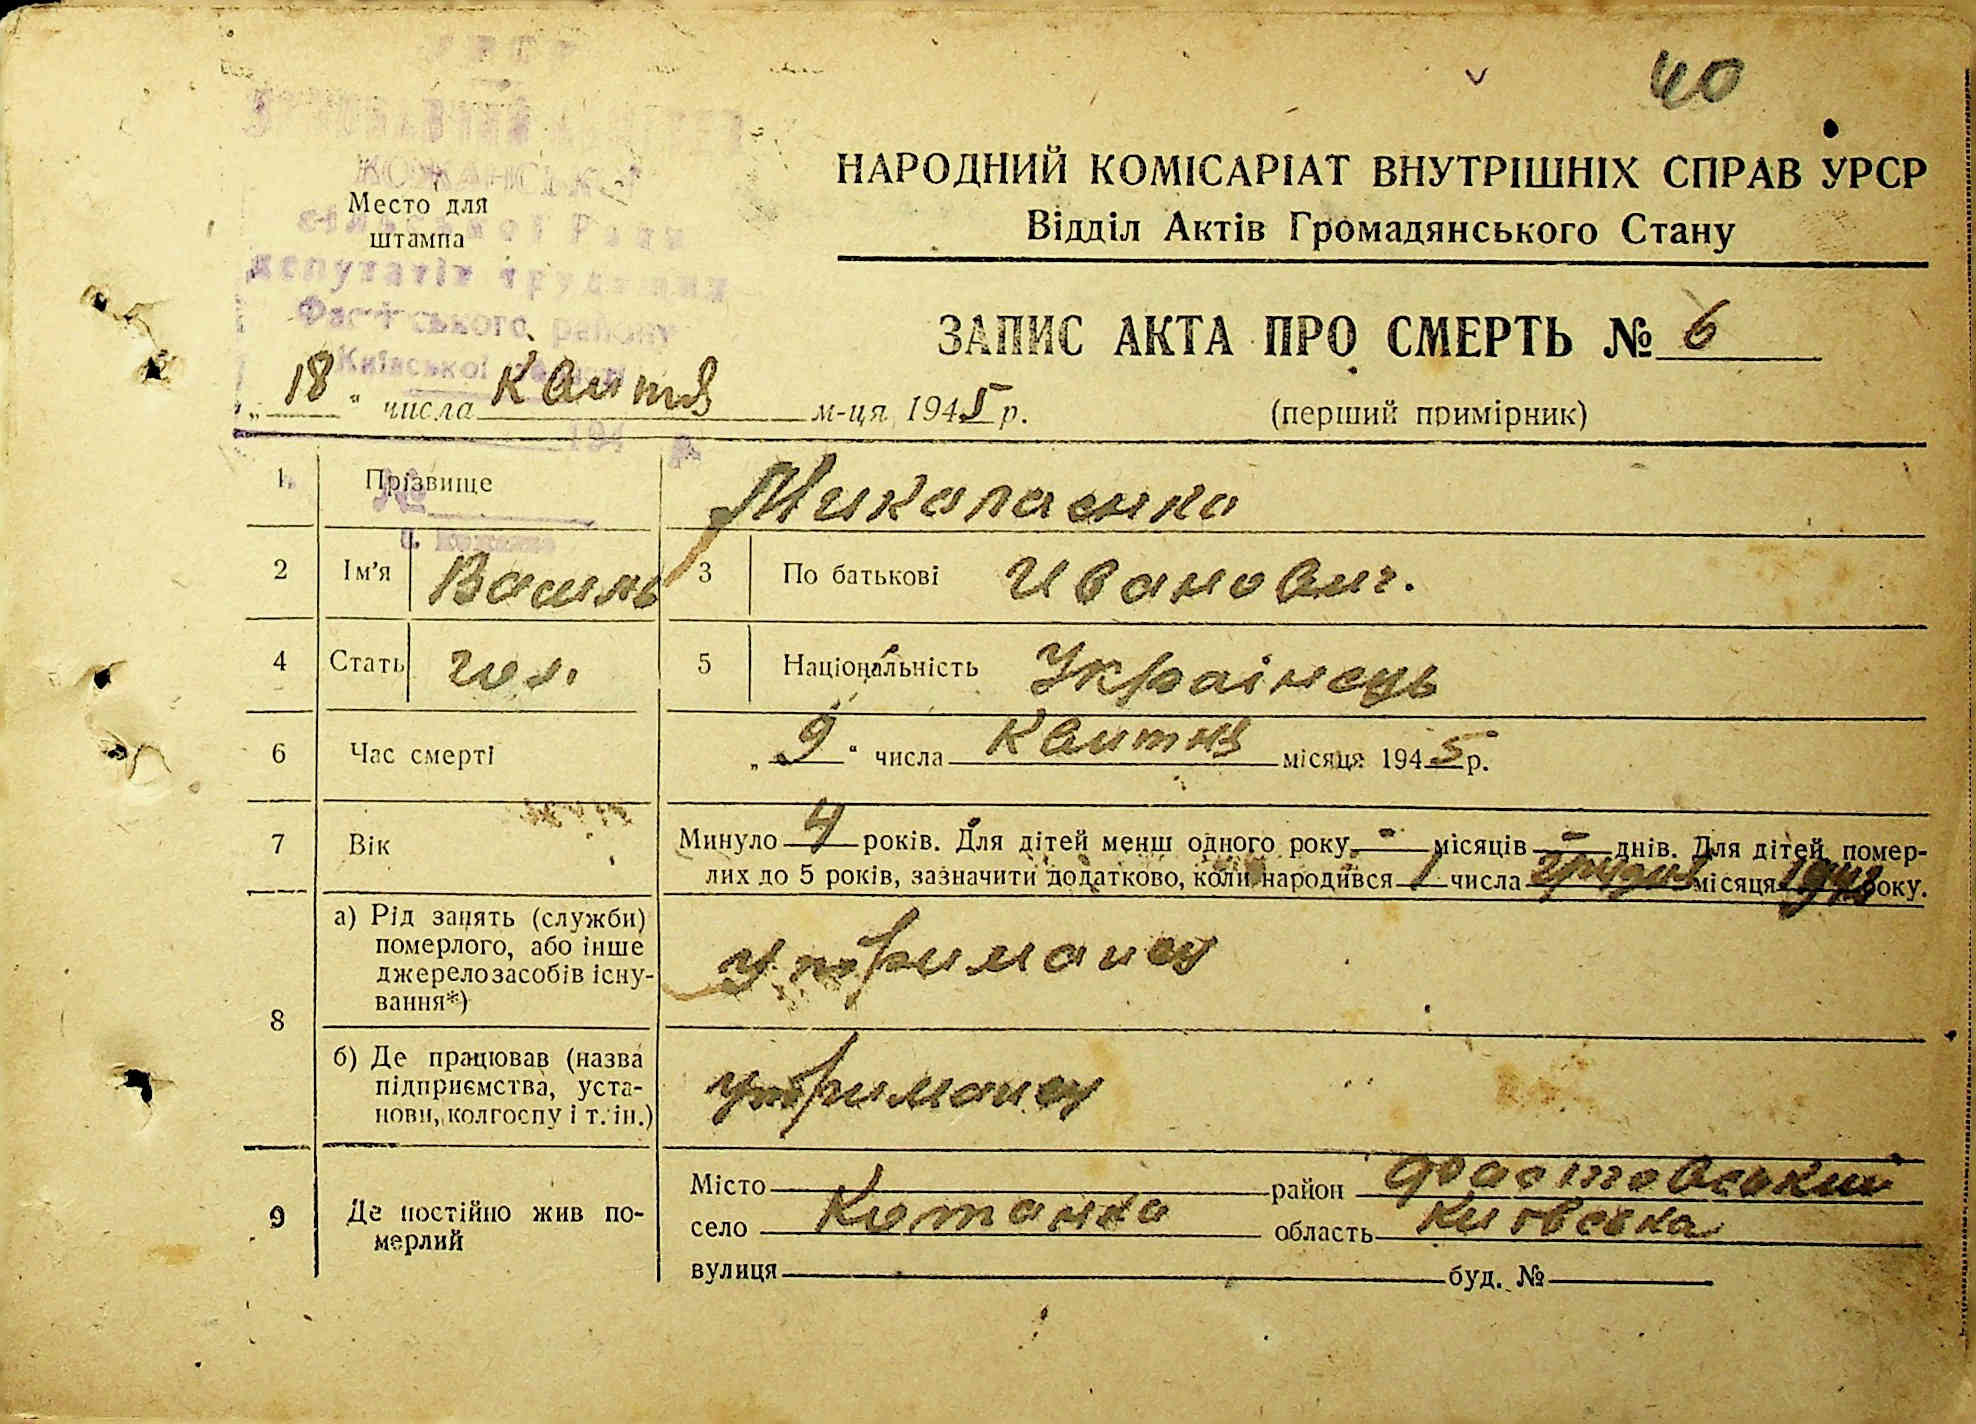 40
НАРОДНИЙ КОМІСАРІАТ ВНУТРІШНІХ СПРАВ УРСР
Відділ Актів Громадянського Стану
КОЖАНСЬКОЇ
Место для
штампа
сільської Ради
депутатів трудящих
Фастівського району
Київської
ЗАПИС АКТА ПРО СМЕРТЬ № 6
„ 18 “ числа Квітня м-ця 1945 р.
(перший примірник)
194 р.
1. Прізвище Миколаенко
№
2 Ім’я Василь 3 По батькові Иванович.
4 Стать чол. 5 Національність Украінець
6 Час смерті „ 9 “ числа Квитня місяця 1945 р.
7 Вік Минуло 4 років. Для дітей менш одного року - місяців - днів. Для дітей помер-
лих до 5 років, зазначити додатково, коли народився 1 числа грудня місяця року.
8 а) Рід занять (служби)
померлого, або інше
джерело засобів існу-
вання*)
утриманец
б) Де працював (назва
підприємства, уста-
нови, колгоспу і т. ін.)
утриманец
9 Де постійно жив по-
мерлий
Місто район Фастовський
село область Киівська
вулиця буд. №